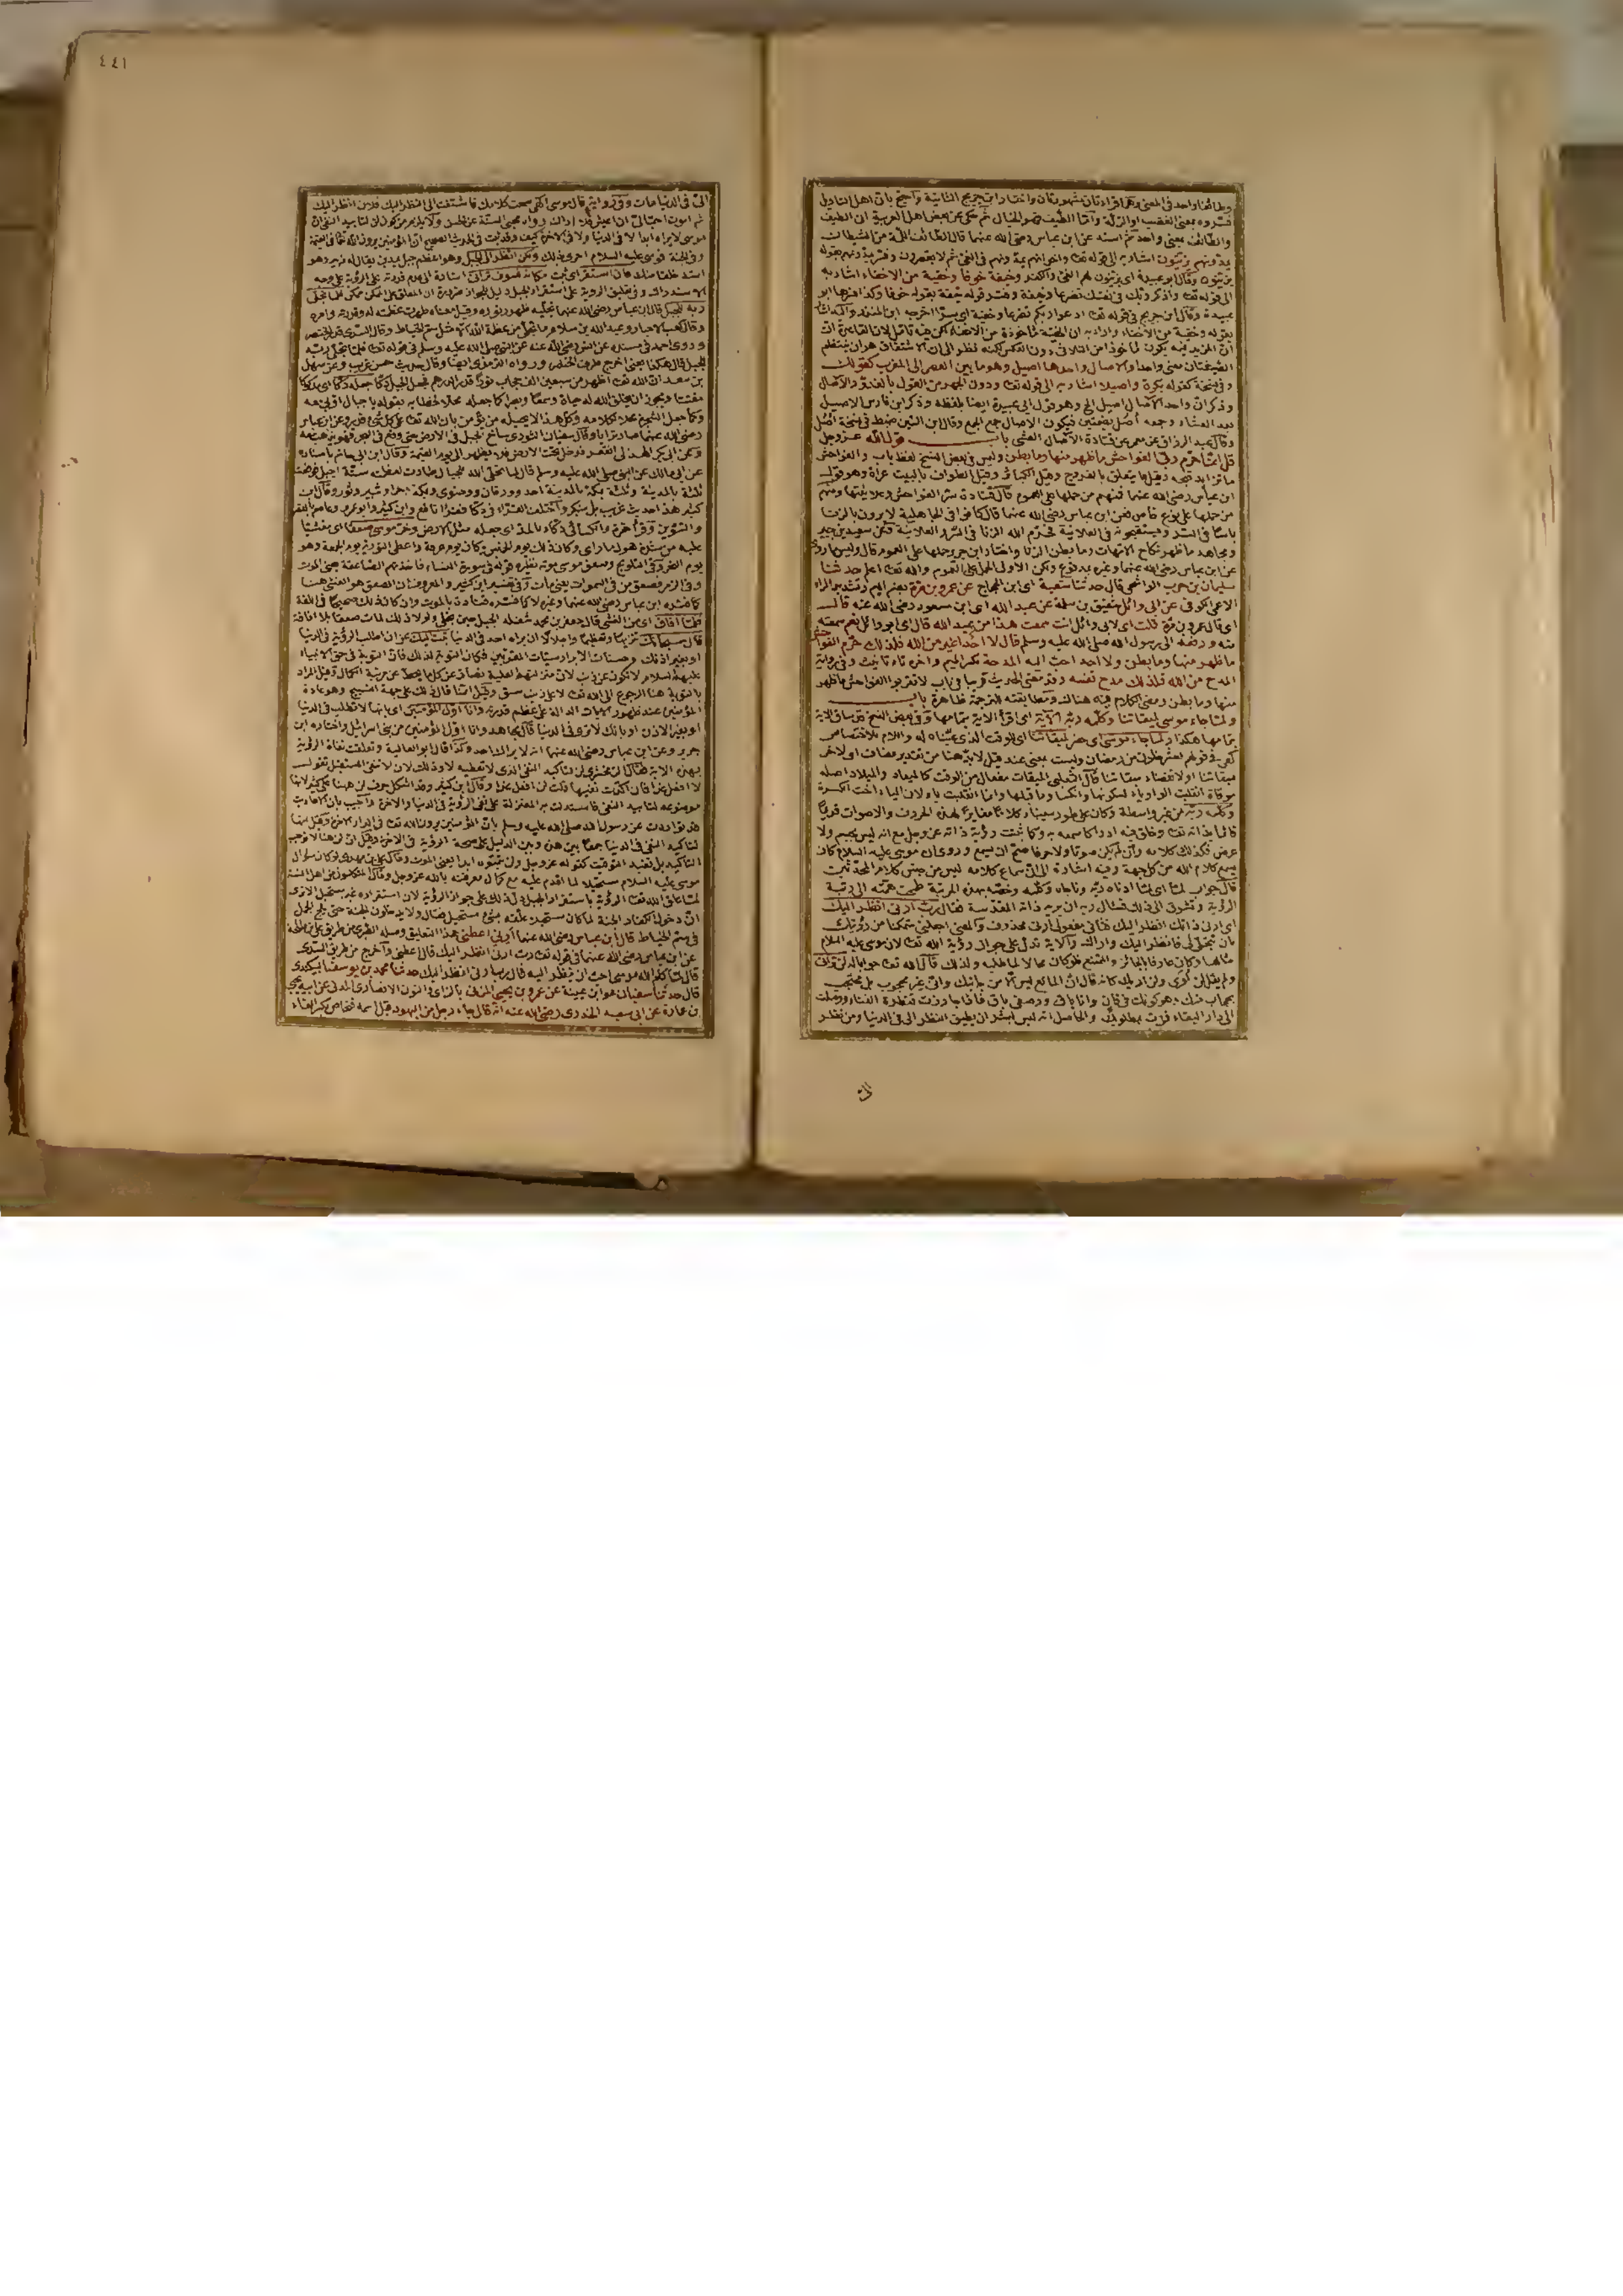 وطائفا واحد في المعنى وهما قراءتان مشهورتان واختار ابن جرير الثانية واحتج بان اهل التاويل
فسروه بمعنى الغضب او الزلة واما الطيف فهو الخيال ثم حكى عن بعض اهل العربية ان الطيف
والطائف بمعنى واحد ثم اسند عن ابن عباس رضي الله عنهما قال الطائف اللمة من الشيطان
يمدونهم يزينون اشار به الى قوله تعا واخوانهم يمدونهم في الغي ثم لا يقصرون وفسر يمدونهم بقوله
يزينون وقال ابو عبيدة اي يزينون لهم الغي والكفر وخيفة خوفا وخفية من الاخفاء اشار به
الى قوله تعا واذكر ربك في نفسك تضرعا وخيفة وفسر قوله خيفة بقوله خوفا وكذا فسرها ابو
عبيدة وقال ابن جريج في قوله تعا ادعوا ربكم تضرعا وخفية اي سرا اخرجه ابن المنذر
بقوله وخفية من الاخفاء واراد به ان الخفية مأخوذة من الاخفاء
ان المزيد فيه يكون مأخوذا من الثلاثي دون العكس لكنه نظر الى ان الاشتقاق هو ان ينتظم
الصيغتان معنى واحدا والاصال واحدها اصيل وهو ما بين العصر الى المغرب كقولك
وفي نسخة كقوله بكرة واصيلا اشار به الى قوله تعا ودون الجهر من القول بالغدو والاصال
وذكر ان واحد الاصال اصيل الخ وهو قول ابي عبيدة ايضا بلفظه وذكر ابن فارس الاصيل
بعد العشاء وجمعه أصل بضمتين فيكون الاصال جمع الجمع وقال ابن التين ضبط في نسخة أصل
وقال عبد الرزاق عن معمر عن قتادة الآصال العشي باب قول الله عز وجل
قل انما حرم ربي الفواحش ما ظهر منها وما بطن وليس في بعض النسخ لفظ باب والفواحش
ما تزايد قبحه وقيل ما يتعلق بالفروج وقيل الكبائر وقيل الطواف بالبيت عراة وهو قول
ابن عباس رضي الله عنهما فمنهم من حملها على العموم قال قتادة سر الفواحش وعلانيتها ومنهم
من حملها على نوع خاص فعن ابن عباس رضي الله عنهما قال كانوا في الجاهلية لا يرون بالزنا
باسا في السر ويستقبحونه في العلانية فحرم الله الزنا في السر والعلانية وعن سعيد بن جبير
ومجاهد ما ظهر نكاح الامهات وما بطن الزنا واختار ابن جرير حملها على العموم قال وليس ما روي
عن ابن عباس رضي الله عنهما وغيره بمدفوع ولكن الاولى الحمل على العموم والله تعا اعلم حدثنا
سليمان بن حرب الواشحي قال حدثنا شعبة اي ابن الحجاج عن عمرو بن مرة بضم الميم وتشديد الراء
الاعمى الكوفي عن ابي وائل شقيق بن سلمة عن عبد الله اي ابن مسعود رضي الله عنه قال
اي قال عمرو بن مرة قلت اي لابي وائل انت سمعت هذا من عبد الله قال اي ابو وائل نعم سمعته
منه ورفعه الى رسول الله صلى الله عليه وسلم قال لا احد اغير من الله فلذلك حرم الفواحش
ما ظهر منها وما بطن ولا احد احب اليه المدحة بكسر الميم واخره تاء تانيث وفي رواية
المدح من الله فلذلك مدح نفسه وقد مضى الحديث قريبا في باب لا تقربوا الفواحش ما ظهر
منها وما بطن ومضى الكلام فيه هناك ومطابقته للترجمة ظاهرة باب
ولما جاء موسى لميقاتنا وكلمه ربه الاية اي اقرأ الاية بتمامها وفي بعض النسخ ساق الاية
بتمامها هكذا ولما جاء موسى اي حضر لميقاتنا اي للوقت الذي عيناه له واللام للاختصاص
كهي في قولهم لعشر خلون من رمضان وليست بمعنى عند قيل لا بد هنا من تقدير مضاف اي لاخر
ميقاتنا او لانقضاء ميقاتنا قال الثعلبي الميقات مفعال من الوقت كالميعاد والميلاد اصله
موقات انقلبت الواو ياء لسكونها وانكسار ما قبلها وانما انقلبت ياء لان الياء اخت الكسرة
وكلمه ربه من غير واسطة وكان على طور سيناء كلاما مغايرا لهذه الحروف والاصوات قديما
قائما بذاته تعا وخلق فيه ادراكا سمعه به وكما ثبتت رؤية ذاته عز وجل مع انه ليس بجسم ولا
عرض فكذلك كلامه وان لم يكن صوتا ولا حرفا صح ان يسمع وروي ان موسى عليه السلام كان
يسمع كلام الله من كل جهة وفيه اشارة الى ان سماع كلامه ليس من جنس كلام المحدثين
قال جواب لما اي لما ادناه ربه وناجاه وكلمه وخصه بهذه المرتبة طمحت همته الى رتبة
الرؤية وتشوق الى ذلك فسأل ربه ان يريه ذاته المقدسة فقال رب ارني انظر اليك
اي ارني ذاتك انظر اليك فثاني مفعولي ارني محذوف والمعنى اجعلني متمكنا من رؤيتك
بان تتجلى لي فانظر اليك واراك والاية تدل على جواز رؤية الله تعا لان موسى عليه السلام
سألها وكان عارفا بالجائز والممتنع فلو كان محالا لما طلبه ولذلك قال الله تعا جوابا له لن تراني
ولم يقل لن أرى ولن اريك كانه قال ان المانع ليس الا من جانبك واني غير محجوب بل محتجب
بحجاب منك وهو كونك في فان وانا باق ووصفي باق فاذا جاوزت قنطرة الفناء ووصلت
الى دار البقاء فزت بمطلوبك والحاصل انه ليس لبشر ان يطيق النظر الي في الدنيا ومن نظر
٤٤١
الي في الدنيا مات وفي رواية قال موسى الهي سمعت كلامك فاشتقت الى النظر اليك فلان انظر اليك
ثم اموت احب الي من ان اعيش ولا اراك رواه محيي السنة عن الحسن ولا يلزم من كون لن لتابيد النفي ان
موسى لا يراه ابدا لا في الدنيا ولا في الاخرة كيف وقد ثبت في الحديث الصحيح ان المؤمنين يرون الله تعا في القيمة
وفي الجنة فموسى عليه السلام احرى بذلك ولكن انظر الى الجبل وهو اعظم جبل بمدين يقال له زبير وهو
اشد خلقا منك فان استقر اي ثبت مكانه فسوف تراني اشارة الى عدم قدرته على الرؤية على وجه
الاستدراك وفي تعليق الرؤية على استقرار الجبل دليل للجواز ضرورة ان المعلق على الممكن ممكن فلما تجلى
ربه للجبل قال ابن عباس رضي الله عنهما تجليه ظهور نوره وقيل معناه ظهرت عظمته له وقدرته وامره
وقال كعب الاحبار وعبد الله بن سلام ما تجلى من عظمة الله الا مثل سم الخياط وقال السدي قدر الخنصر
وروى احمد في مسنده عن انس رضي الله عنه عن النبي صلى الله عليه وسلم في قوله تعا فلما تجلى ربه
للجبل قال هكذا يعني اخرج طرف الخنصر ورواه الترمذي ايضا وقال حديث حسن غريب وعن سهل
بن سعد ان الله تعا اظهر من سبعين الف حجاب نورا قدر الدرهم فجعل الجبل دكا جعله دكا اي مدكوكا
مفتتا ويجوز ان يخلق الله له حياة وسمعا وبصرا كما جعله محلا لخطابه بقوله يا جبال اوبي معه
وكما جعل الشجرة محلا لكلامه وكل هذا لا يحيله من يؤمن بان الله تعا على كل شئ قدير وعن ابن عباس
رضي الله عنهما صار ترابا وقال سفيان الثوري ساخ الجبل في الارض حتى وقع في البحر فهو يذهب معه
وعن ابي بكر الهذلي انقعر فدخل تحت الارض فلا يظهر الى يوم القيمة وقال ابن ابي حاتم باسناده
عن ابي مالك عن النبي صلى الله عليه وسلم قال لما تجلى الله للجبال طارت لعظمته ستة اجبل فوقعت
ثلثة بالمدينة وثلثة بمكة بالمدينة احد وورقان ورضوى وبمكة حرا وثبير وثور وقال ابن
كثير هذا حديث غريب بل منكر واختلف القراء في دكا فقرأ نافع وابن كثير وابو عمرو وعاصم بالقصر
والتنوين وقرأ حمزة والكسائي دكاء بالمد اي جعله مثل الارض وخر موسى صعقا اي مغشيا
عليه من شدة هول ما راى وكان ذلك يوم الخميس وكان يوم عرفة واعطي التورية يوم الجمعة وهو
يوم النحر وفي التلويح وصعق موسى موته نظيره قوله في سورة النساء فاخذتهم الصاعقة يعني الموت
وفي الزمر فصعق من في السموات يعني مات وفي تفسير ابن كثير والمعروف ان الصعق هو الغشي هنا
كما فسره ابن عباس رضي الله عنهما وغيره لا كما فسره قتادة بالموت وان كان ذلك صحيحا في اللغة
فلما افاق اي من الغشي قال جعفر بن محمد شغله الجبل حين تجلى ولولا ذلك لمات صعقا بلا افاقة
قال سبحانك تنزيها وتعظيما واجلالا ان يراه احد في الدنيا تبت اليك عن ان اطلب الرؤية في الدنيا
او بغير اذنك وحسنات الابرار سيئات المقربين فكان التوبة لذلك فان التوبة في حق الانبياء
عليهم السلام لا تكون عن ذنب لان منزلتهم العلية تصان عن كل ما يحط عن مرتبة الكمال وقيل المراد
بالتوبة هنا الرجوع الى الله تعا لا عن ذنب سبق وقيل انما قال ذلك على جهة التسبيح وهو عادة
المؤمنين عند ظهور الايات الدالة على عظيم قدرته وانا اول المؤمنين اي بانها لا تطلب في الدنيا
او بغير الاذن او بانك لا ترى في الدنيا قال مجاهد وانا اول المؤمنين من بني اسرائيل واختاره ابن
جرير وعن ابن عباس رضي الله عنهما انه لا يراك احد وكذا قال ابو العالية وتعلقت نفاة الرؤية
بهذه الاية فقال الزمخشري لن لتاكيد النفي الذي لا تعطيه لا وذلك لان لا تنفي المستقبل تقول
لا افعل غدا فاذا اكدت نفيها قلت لن افعل غدا وقال ابن كثير وقد اشكل حرف لن ههنا على كثير لانها
موضوعة لتابيد النفي فاستدلت به المعتزلة على نفي الرؤية في الدنيا والاخرة واجيب بان الاحاديث
قد تواردت عن رسول الله صلى الله عليه وسلم بان المؤمنين يرون الله تعا في الدار الاخرة وقيل انها
لتاكيد النفي في الدنيا جمعا بين هذه وبين الدليل على صحة الرؤية في الاخرة وقيل ان لن هنا لا توجب
التاكيد بل تفيد التوقيت كقوله عز وجل ولن يتمنوه ابدا يعني الموت وقال علي بن مهدي لو كان سؤال
موسى عليه السلام مستحيلا لما اقدم عليه مع كمال معرفته بالله عز وجل وقال المتكلمون من اهل السنة
لما علق الله تعا الرؤية باستقرار الجبل دل ذلك على جواز الرؤية لان استقراره غير مستحيل الا ترى
ان دخول الكفار الجنة لما كان مستحيلا علقه بشئ مستحيل فقال ولا يدخلون الجنة حتى يلج الجمل
في سم الخياط قال ابن عباس رضي الله عنهما أرني اعطني هذا التعليق وصله الطبري من طريق علي بن طلحة
عن ابن عباس رضي الله عنهما في قوله تعا رب ارني انظر اليك قال اعطني واخرج من طريق السدي
قال لما كلم الله موسى احب ان ينظر اليه قال رب ارني انظر اليك حدثنا محمد بن يوسف البيكندي
قال حدثنا سفيان هو ابن عيينة عن عمرو بن يحيى المازني بالزاي والنون الانصاري المدني عن ابيه يحيى
بن عمارة عن ابي سعيد الخدري رضي الله عنه انه قال جاء رجل من اليهود قيل اسمه فنحاص بكسر الفاء